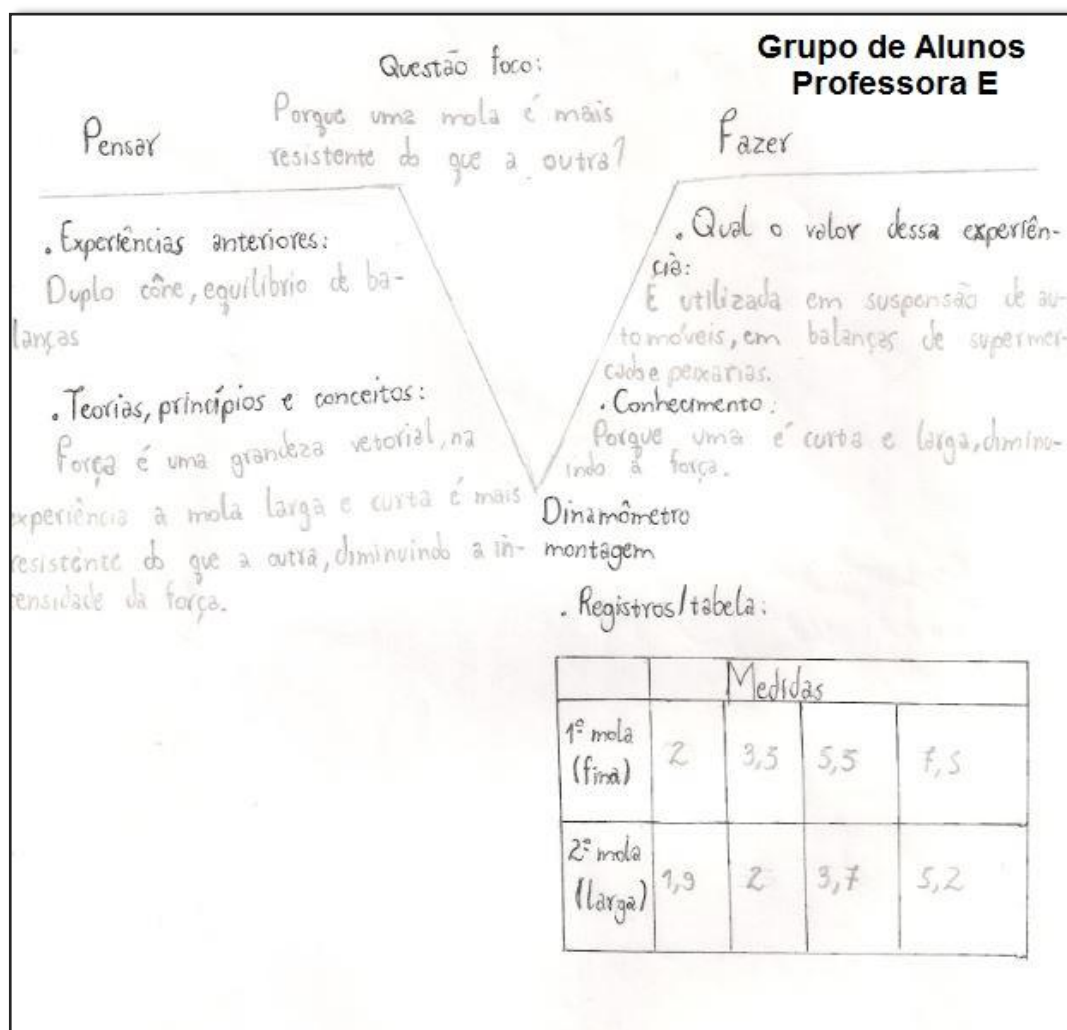 Grupo de Alunos
Professora E
Questão foco:
Porque uma mola é mais
resistente do que a outra?
Pensar
Fazer
. Experiências anteriores:
Duplo cône, equilíbrio de ba-
lanças
. Teorias, princípios e conceitos:
Força é uma grandeza vetorial, na
experiência a mola larga e curta é mais
resistente do que a outra, diminuindo a in-
tensidade da força.
. Qual o valor dessa experiên-
cia:
É utilizada em suspensão de au-
tomóveis, em balanças de supermer-
cados e peixarias.
. Conhecimento:
Porque uma é curta e larga, diminu-
indo a força.
Dinamômetro
montagem
. Registros/tabela:
Medidas
1º mola (fina) 2 3,5 5,5 7,5
2º mola (larga) 1,9 2 3,7 5,2